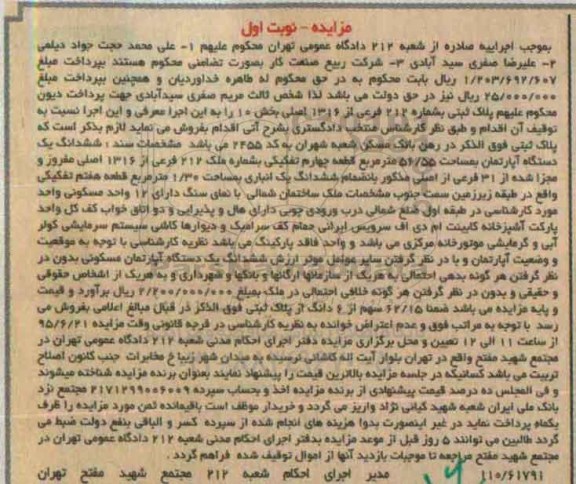 مزایده - نوبت اول
بموجب اجراییه صادره از شعبه ۲۱۲ دادگاه عمومی تهران محکوم علیهم ۱- علی محمد حجت جواد دیلمی
۲- علیرضا صفری سید آبادی ۳- شرکت ربیع صنعت کار بصورت تضامنی محکوم هستند بپرداخت مبلغ
۱/۲۰۳/۶۹۲/۶۰۷ ریال بابت محکوم به در حق محکوم له طاهره خداوردیان و همچنین بپرداخت مبلغ
۲۵/۰۰۰/۰۰۰ ریال نیز در حق دولت می باشد لذا شخص ثالث مریم صفری سیدآبادی جهت پرداخت دیون
محکوم علیهم پلاک ثبتی بشماره ۲۱۲ فرعی از ۱۳۱۶ اصلی بخش ۱۰ را به این اجرا معرفی و این اجرا نسبت به
توقیف آن اقدام و طبق نظر کارشناس منتخب دادگستری بشرح آتی اقدام بفروش می نماید لازم بذکر است که
پلاک ثبتی فوق الذکر در رهن بانک مسکن شعبه شهران به کد ۲۴۵۵ می باشد مشخصات سند : ششدانگ یک
دستگاه آپارتمان بمساحت ۵۶/۵۵ مترمربع قطعه چهارم تفکیکی بشماره ملک ۲۱۲ فرعی از ۱۳۱۶ اصلی مفروز و
مجزا شده از ۳۱ فرعی از اصلی مذکور بانضمام ششدانگ یک انباری بمساحت ۱/۳۰ مترمربع قطعه هفتم تفکیکی
واقع در طبقه زیرزمین سمت جنوب مشخصات ملک ساختمان شمالی با نمای سنگ دارای ۱۲ واحد مسکونی واحد
مورد کارشناسی در طبقه اول ضلع شمالی درب ورودی چوبی دارای هال و پذیرایی و دو اتاق خواب کف کل واحد
پارکت آشپزخانه کابینت ام دی اف سرویس ایرانی حمام کف سرامیک و دیوارها کاشی سیستم سرمایشی کولر
آبی و گرمایشی موتورخانه مرکزی می باشد و واحد فاقد پارکینگ می باشد نظریه کارشناسی با توجه به موقعیت
و وضعیت آپارتمان و با در نظر گرفتن سایر عوامل موثر ارزش ششدانگ یک دستگاه آپارتمان مسکونی بدون در
نظر گرفتن هر گونه بدهی احتمالی به هریک از سازمانها ارگانها و بانکها و شهرداری و به هریک از اشخاص حقوقی
و حقیقی و بدون در نظر گرفتن هر گونه خلافی احتمالی در ملک بمبلغ ۲/۲۰۰/۰۰۰/۰۰۰ ریال برآورد و قیمت
و پایه مزایده می باشد ضمنا ۶۲/۱۵ سهم از ۶ دانگ از پلاک ثبتی فوق الذکر در قبال مبالغ اعلامی بفروش می
رسد با توجه به مراتب فوق و عدم اعتراض خوانده به نظریه کارشناسی در فرجه قانونی وقت مزایده ۹۵/۶/۲۱
از ساعت ۱۱ الی ۱۲ تعیین و محل برگزاری مزایده دفتر اجرای احکام مدنی شعبه ۲۱۲ دادگاه عمومی تهران در
مجتمع شهید مفتح واقع در تهران بلوار آیت اله کاشانی نرسیده به میدان شهر زیبا خ مخابرات جنب کانون اصلاح
تربیت می باشد کسانیکه در جلسه مزایده بالاترین قیمت را پیشنهاد نمایند بعنوان برنده مزایده شناخته میشوند
و فی المجلس ده درصد قیمت پیشنهادی از برنده مزایده اخذ و بحساب سپرده ۲۱۷۱۲۹۹۰۰۶۰۰۹ مجتمع نزد
بانک ملی ایران شعبه شهید کیانی نژاد واریز می گردد و خریدار موظف است باقیمانده ثمن مورد مزایده را ظرف
یکماه پرداخت نماید در غیر اینصورت بدوا هزینه های انجام شده از سپرده کسر و الباقی بنفع دولت ضبط می
گردد طالبین می توانند ۵ روز قبل از موعد مزایده بدفتر اجرای احکام مدنی شعبه ۲۱۲ دادگاه عمومی تهران در
مجتمع شهید مفتح مراجعه تا موجبات بازدید آنها از اموال توقیف شده فراهم گردد .
۱۱۰/۶۱۷۹۱ مدیر اجرای احکام شعبه ۲۱۲ مجتمع شهید مفتح تهران